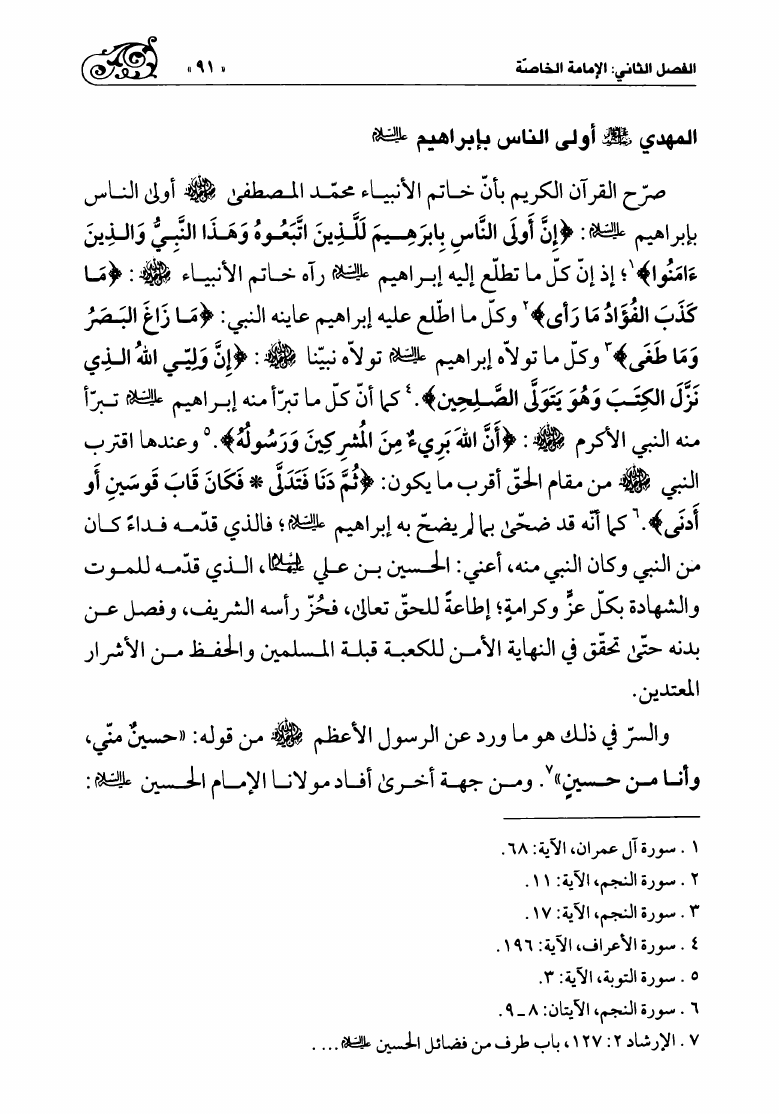 الفصل الثاني: الإمامة الخاصّة «٩١»
المهدي ﷺ أولى الناس بإبراهيم عليه السلام
صرّح القرآن الكريم بأنّ خاتم الأنبياء محمّد المصطفىٰ ﷺ أولىٰ الناس
بإبراهيم عليه السلام: ﴿إِنَّ أَولَى النَّاسِ بِإبرَهِـيمَ لَلَّذِينَ اتَّبَعُوهُ وَهَذَا النَّبِيُّ وَالذِينَ
ءَامَنُوا﴾١؛ إذ إنّ كلّ ما تطلّع إليه إبراهيم عليه السلام رآه خاتم الأنبياء ﷺ: ﴿مَا
كَذَبَ الفُؤَادُ مَا رَأى﴾٢ وكلّ ما اطّلع عليه إبراهيم عاينه النبي: ﴿مَا زَاغَ البَصَرُ
وَمَا طَغَى﴾٣ وكلّ ما تولاّه إبراهيم عليه السلام تولاّه نبيّنا ﷺ: ﴿إِنَّ وَلِيّـيَ اللهُ الذِي
نَزَّلَ الكِتَـبَ وَهُوَ يَتَوَلَّى الصَّـلِحِين﴾.٤ كما أنّ كلّ ما تبرّأ منه إبراهيم عليه السلام تبرّأ
منه النبي الأكرم ﷺ: ﴿أَنَّ اللهَ بَرِيءٌ مِنَ المُشرِكِينَ وَرَسُولُهُ﴾.٥ وعندها اقترب
النبي ﷺ من مقام الحقّ أقرب ما يكون: ﴿ثُمَّ دَنَا فَتَدَلَّى * فَكَانَ قَابَ قَوسَينِ أَو
أَدنَى﴾.٦ كما أنّه قد ضحّىٰ بما لم يضحّ به إبراهيم عليه السلام؛ فالذي قدّمه فداءً كان
من النبي وكان النبي منه، أعني: الحسين بن علي عليهما السلام، الذي قدّمه للموت
والشهادة بكلّ عزٍّ وكرامةٍ؛ إطاعةً للحقّ تعالىٰ، فحُزّ رأسه الشريف، وفصل عن
بدنه حتّىٰ تحقّق في النهاية الأمن للكعبة قبلة المسلمين والحفظ من الأشرار
المعتدين.
والسرّ في ذلك هو ما ورد عن الرسول الأعظم ﷺ من قوله: «حسينٌ منّي،
وأنا من حسينٍ»٧. ومن جهة أخرىٰ أفاد مولانا الإمام الحسين عليه السلام:
١. سورة آل عمران، الآية: ٦٨.
٢. سورة النجم، الآية: ١١.
٣. سورة النجم، الآية: ١٧.
٤. سورة الأعراف، الآية: ١٩٦.
٥. سورة التوبة، الآية: ٣.
٦. سورة النجم، الآيتان: ٨ـ٩.
٧. الإرشاد ٢: ١٢٧، باب طرف من فضائل الحسين عليه السلام....